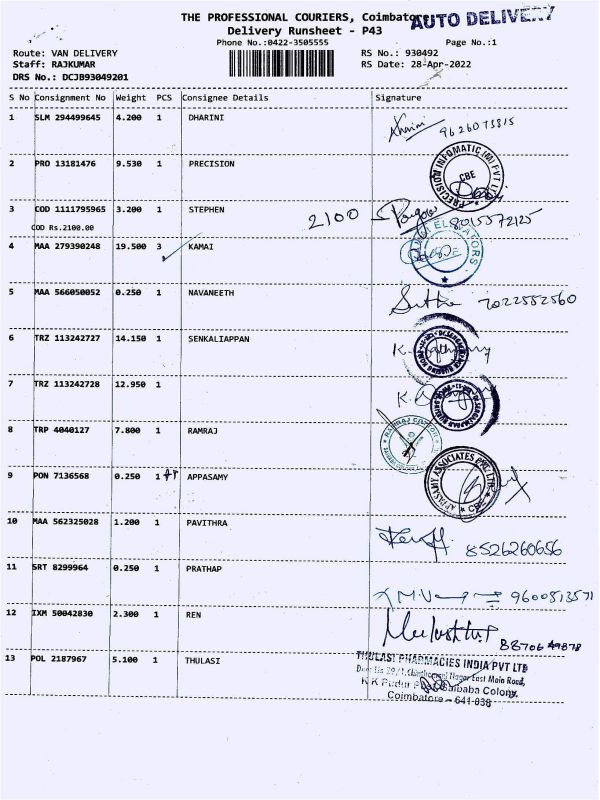 THE PROFESSIONAL COURIERS, Coimbatore
AUTO DELIVERY
Delivery Runsheet - P43
Phone No.:0422-3505555
Page No.:1
Route: VAN DELIVERY
RS No.: 930492
Staff: RAJKUMAR
RS Date: 28-Apr-2022
DRS No.: DCJB93049201
S No Consignment No Weight PCS Consignee Details Signature
1 SLM 294499645 4.200 1 DHARINI
9626073815
2 PRO 13181476 9.530 1 PRECISION
PRECISION INFOMATIC (M) PVT LTD CBE
3 COD 1111795965 3.200 1 STEPHEN 2100
COD Rs.2100.00
4 MAA 279390248 19.500 3 KAMAI
5 MAA 566050052 0.250 1 NAVANEETH 7022552560
6 TRZ 113242727 14.150 1 SENKALIAPPAN
7 TRZ 113242728 12.950 1
8 TRP 4040127 7.800 1 RAMRAJ
RAMRAJ COTTON
9 PON 7136568 0.250 1 APPASAMY
APPASAMY ASSOCIATES PVT. LTD. CBE
10 MAA 562325028 1.200 1 PAVITHRA
8526260656
11 SRT 8299964 0.250 1 PRATHAP
9600513571
12 IXM 50042830 2.300 1 REN
13 POL 2187967 5.100 1 THULASI
THULASI PHARMACIES INDIA PVT LTD
Nagar East Main Road,
Saibaba Colony,
Coimbatore - 641-038